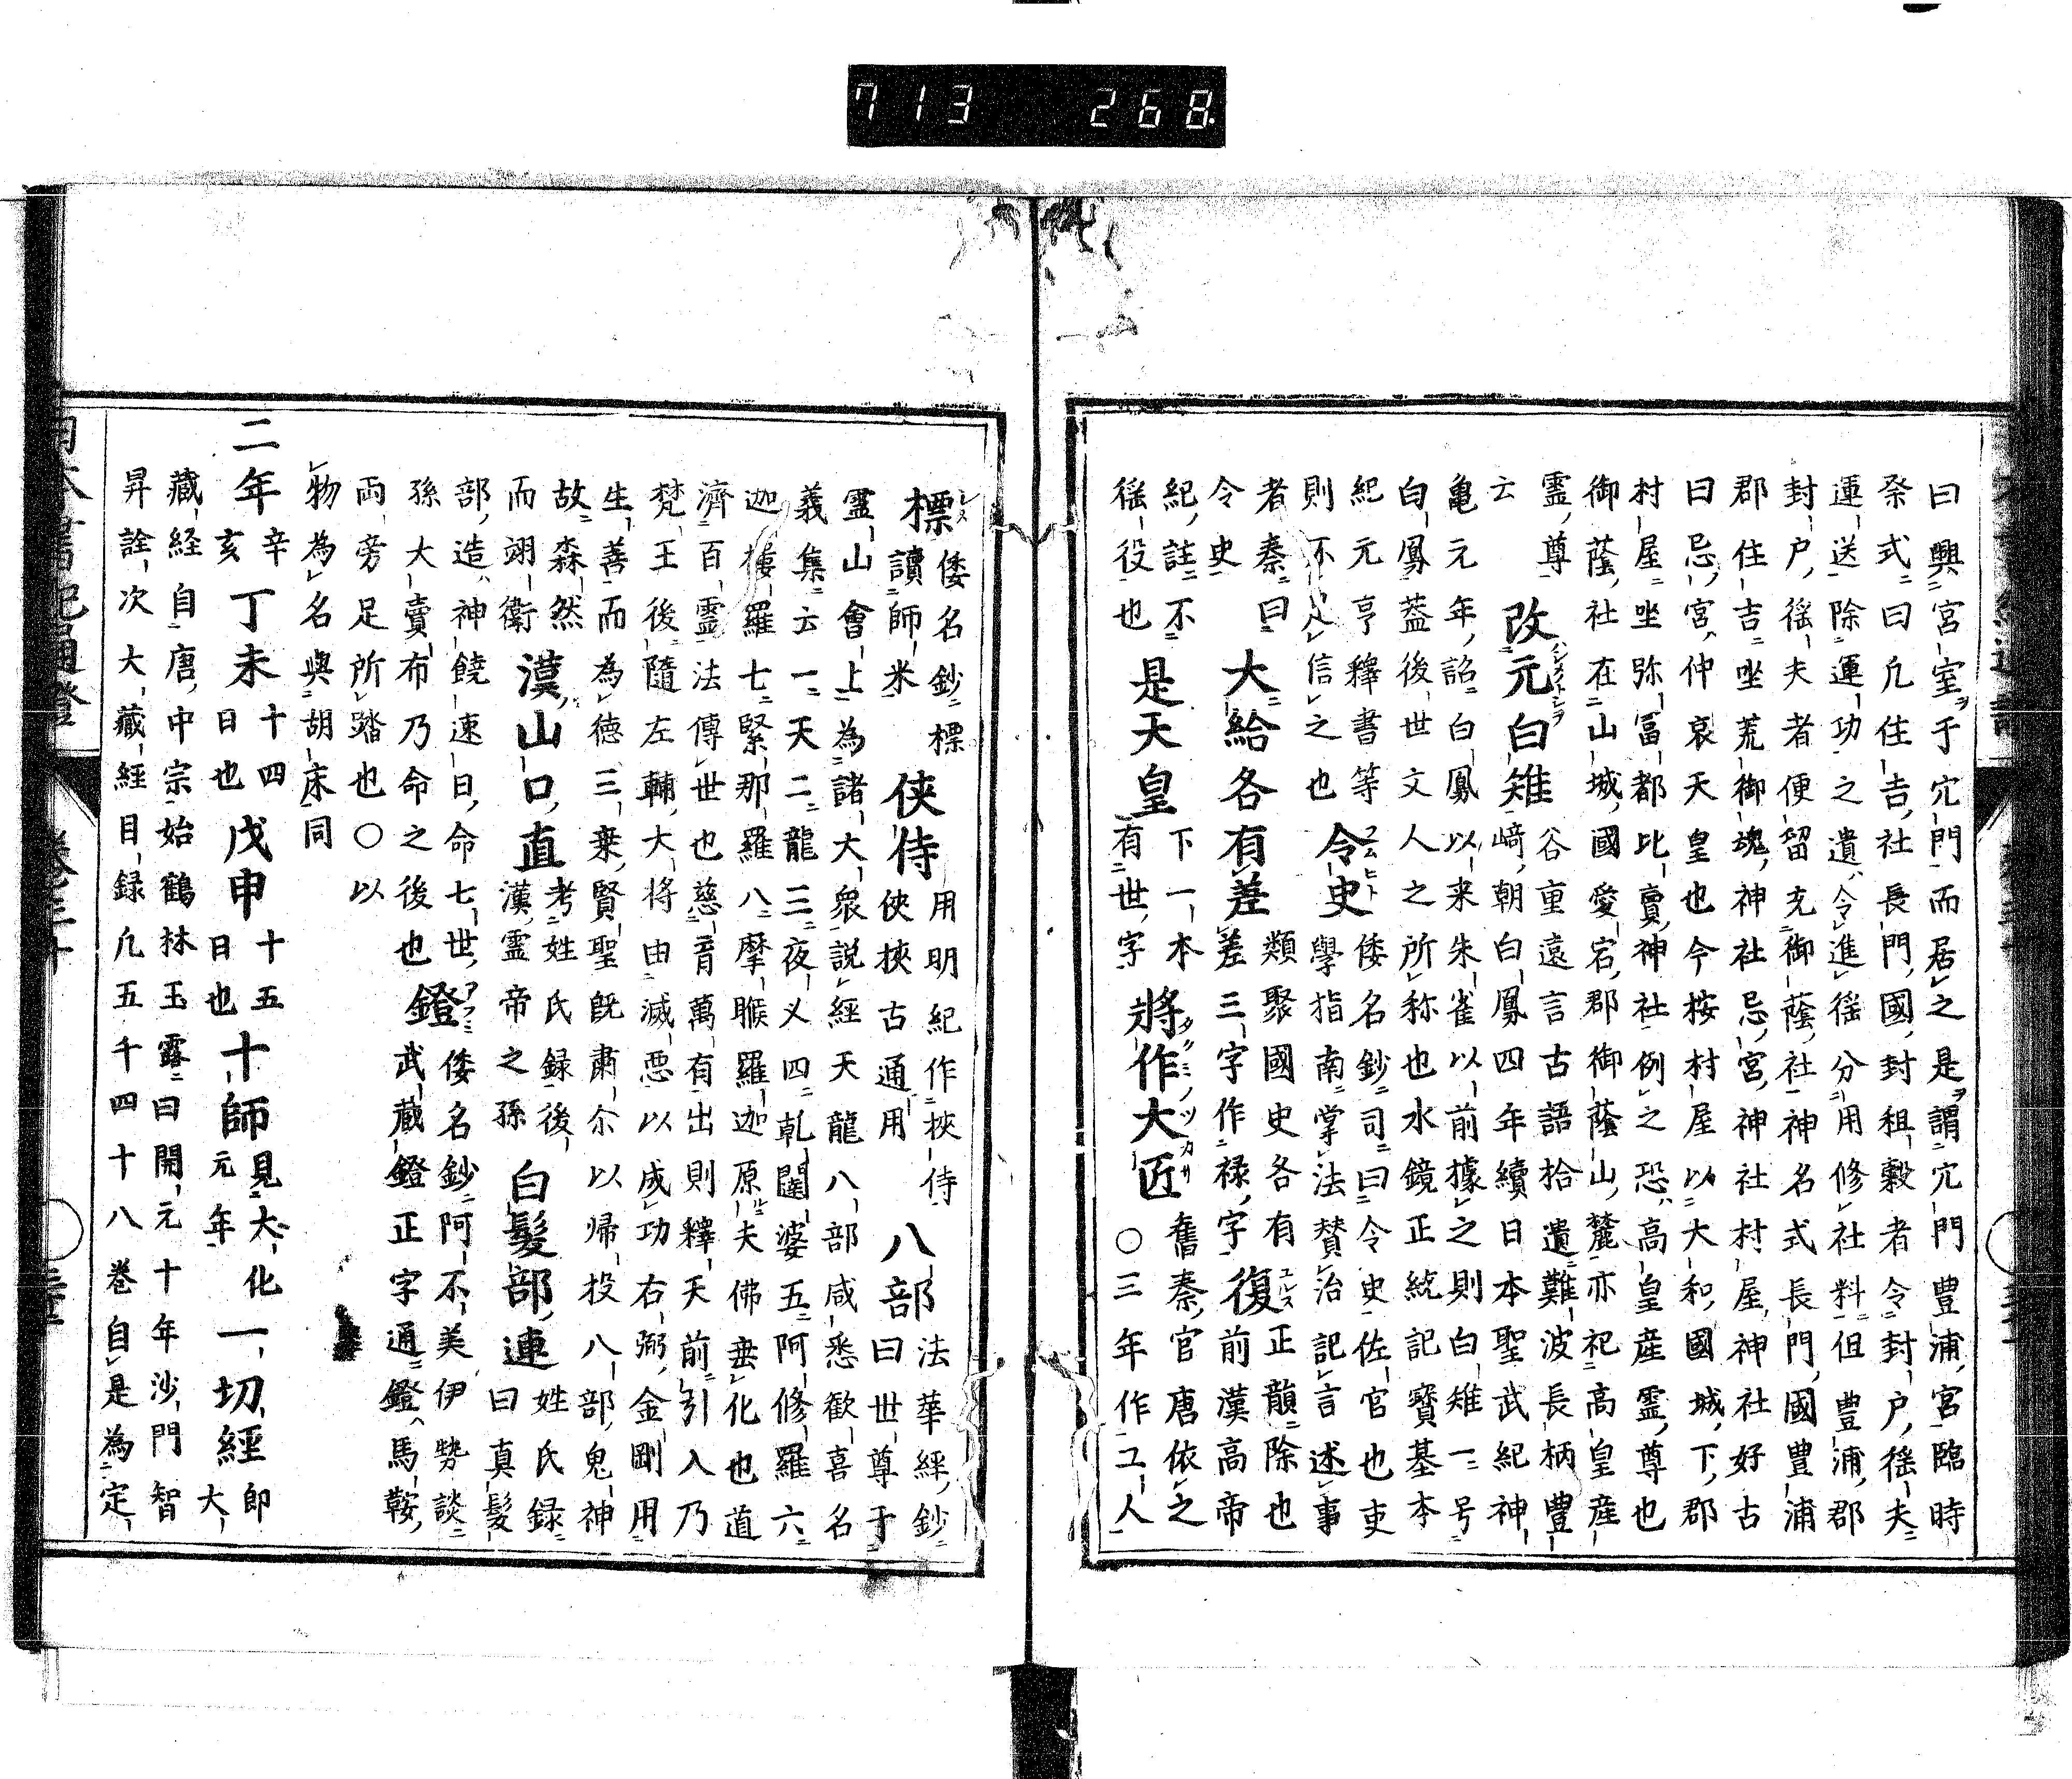 713 268
曰興宮室于宂門而居之是謂宂門豊浦宮臨時
祭式曰凡住吉社長門國封租穀者令封戸徭夫
運送除運功之遺令進徭分用修社料但豊浦郡
封戸徭夫者便留充御蔭社神名式長門國豊浦
郡住吉坐荒御魂神社忌宮神社村屋神社好古
曰忌宮仲哀天皇也今按村屋以大和國城下郡
村屋坐弥冨都比賣神社例之恐高皇産霊尊也
御蔭社在山城國愛宕郡御蔭山麓亦祀高皇産
霊尊 改元白雉 谷重遠言古語拾遺難波長柄豊
﨑朝白鳳四年續日本聖武紀神
云
亀元年詔白鳳以来朱雀以前據之則白雉一号
白鳳葢後世文人之所称也水鏡正統記寳基本
紀元亨釋書等 令史 倭名鈔司曰令史佐官也吏
學指南掌法賛治記言述事
則不
信之也
者秦曰 大給各有差 類聚國史各有 復 正韻除也
差三字作禄字 前漢高帝
令史
紀註不
徭役也 是天皇 下一本
有世字 將作大匠 奮秦官唐依之
○三年作工人
標 倭名鈔標
讀師米 侠侍 用明紀作挾侍
侠挾古通用 八部 法華經鈔
曰世尊于
霊山會上為諸大衆説經天龍八部咸悉歓喜名
義集云一天二龍三夜义四乹闥婆五阿修羅六
迦樓羅七緊那羅八摩睺羅迦原夫佛埀化也道
濟百霊法傳世也慈育萬有出則釋天前引入乃
梵王後隨左輔大将由滅悪以成功右弼金剛用
生善而為徳三乗賢聖既肅尒以帰投八部鬼神
故森然
而翊衛 漢山口直 考姓氏録後
漢霊帝之孫 白髮部連 姓氏録
曰真髮
部造神饒速日命七世
孫大賣布乃命之後也 鐙 倭名鈔阿不美伊勢談
武蔵鐙正字通鐙馬鞍
兩旁足所踏也○以
物為名與胡床同
二年 辛
亥 丁未 十四
日也 戊申 十五
日也 十師 見大化
元年 一切經 即
大
藏経自唐中宗始鶴林玉露曰開元十年沙門智
昇詮次大藏經目録凡五千四十八巻自是為定